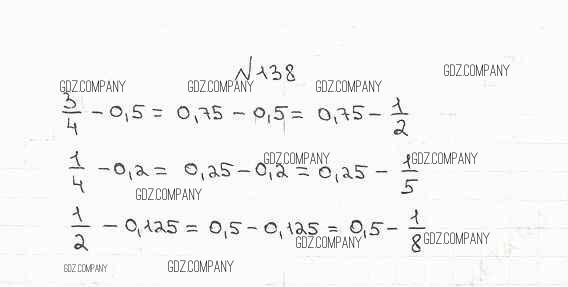 №138
GDZ.COMPANY
GDZ.COMPANY GDZ.COMPANY GDZ.COMPANY
3/4 - 0,5 = 0,75 - 0,5 = 0,75 - 1/2
GDZ.COMPANY GDZ.COMPANY
1/4 - 0,2 = 0,25 - 0,2 = 0,25 - 1/5
GDZ.COMPANY
1/2 - 0,125 = 0,5 - 0,125 = 0,5 - 1/8
GDZ.COMPANY GDZ.COMPANY
GDZ.COMPANY GDZ.COMPANY